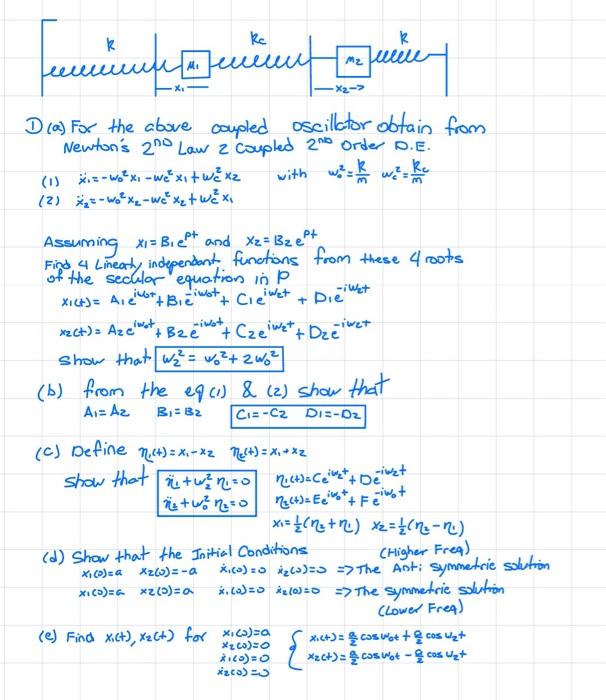 k kc k
M1 M2
x1 x2->
1) (a) For the above coupled oscillator obtain from
Newton's 2ND Law 2 Coupled 2ND Order D.E.
(1) ẍ1=-ω0²x1-ωc²x1+ωc²x2 with ω0²=k/m ωc²=kc/m
(2) ẍ2=-ω0²x2-ωc²x2+ωc²x1
Assuming x1=B1e^pt and x2=B2e^pt
Find 4 Linearly independent functions from these 4 roots
of the secular equation in P
x1(t)=A1e^iω0t+B1e^-iω0t+C1e^iω2t+D1e^-iω2t
x2(t)=A2e^iω0t+B2e^-iω0t+C2e^iω2t+D2e^-iω2t
show that ω2²=ω0²+2ω0²
(b) from the eq (1) & (2) show that
A1=A2 B1=B2 C1=-C2 D1=-D2
(c) Define η1(t)=x1-x2 η2(t)=x1+x2
show that η̈1+ω2²η1=0 η1(t)=Ce^iω2t+De^-iω2t
η̈2+ω0²η2=0 η2(t)=Ee^iω0t+Fe^-iω0t
x1=½(η2+η1) x2=½(η2-η1)
(d) Show that the Initial Conditions (Higher Freq)
x1(0)=a x2(0)=-a ẋ1(0)=0 ẋ2(0)=0 => The Anti symmetric solution
x1(0)=a x2(0)=a ẋ1(0)=0 ẋ2(0)=0 => The symmetric solution
(Lower Freq)
(e) Find x1(t), x2(t) for x1(0)=a { x1(t)=a/2 cosω0t+a/2 cosω2t
x2(0)=0 x2(t)=a/2 cosω0t-a/2 cosω2t
ẋ1(0)=0
ẋ2(0)=0